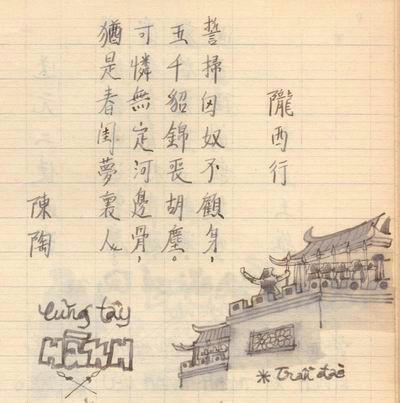 隴西行
誓掃匈奴不顧身，
五千貂錦喪胡塵。
可憐無定河邊骨，
猶是春閨夢裏人
陳陶
Lũng tây
HÀNH
* Trần đào